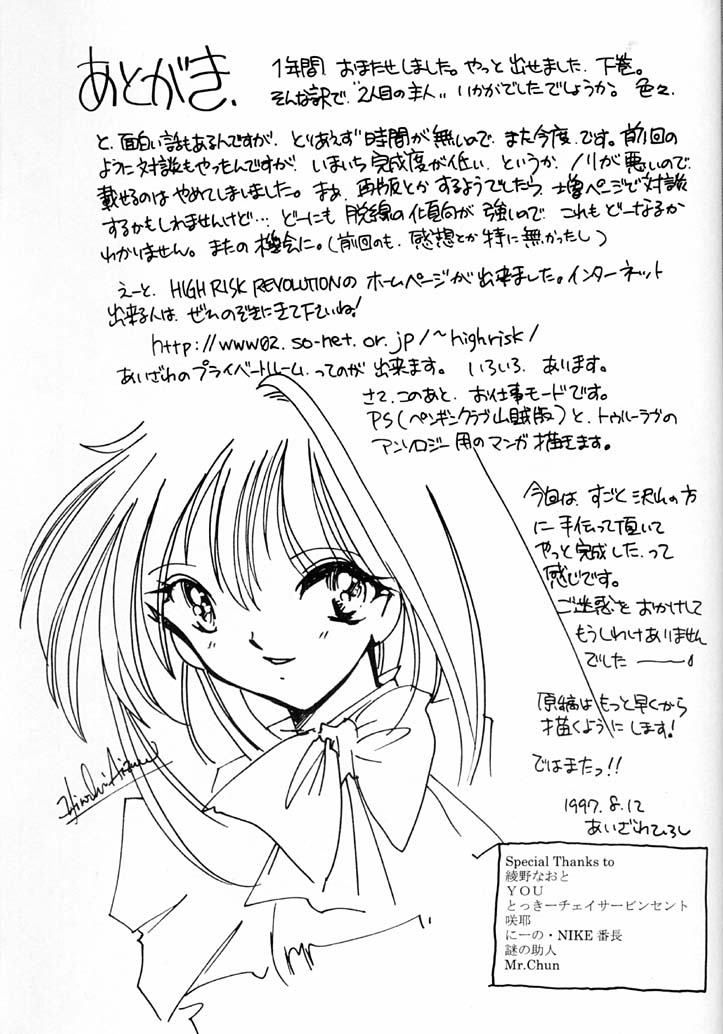 あとがき、
1年間、おまたせしました。やっと出せました、下巻。
そんな訳で、"2人目の主人"、いかがでしたでしょうか。色々
と、面白い話もあるんですが、とりあえず時間が無いので、また今度です。前回の
ように対談もやったんですが、いまいち完成度が低い、というか、ノリが悪いので、
載せるのはやめてしまいました。まぁ、再版とかするようでしたら、増ページで対談
するかもしれませんけど…、どーにも脱線の傾向が強いので、これもどーなるか
わかりません。またの機会に。(前回のも、感想とか特に無かったし)
えーと、HIGH RISK REVOLUTIONのホームページが出来ました。インターネット
出来る人は、ぜひのぞきにきて下さいね!
http://www02.so-net.or.jp/~highrisk/
あいざわのプライベートルーム、ってのが出来ます。いろいろ、あります。
さて、このあと、お仕事モードです。
PS(ペンギンクラブ山賊版)と、トゥルーラヴの
アンソロジー用のマンガ描きます。
今回は、すごく沢山の方
に手伝って頂いて
やっと完成した、って
感じです。
ご迷惑をおかけして
もうしわけありません
でした――
原稿はもっと早くから
描くようにします!
ではまたっ!!
1997.8.12
あいざわひろし
Hiroshi Aizawa
Special Thanks to
綾野なおと
YOU
とっきーチェイサービンセント
咲耶
にーの・NIKE番長
謎の助人
Mr.Chun